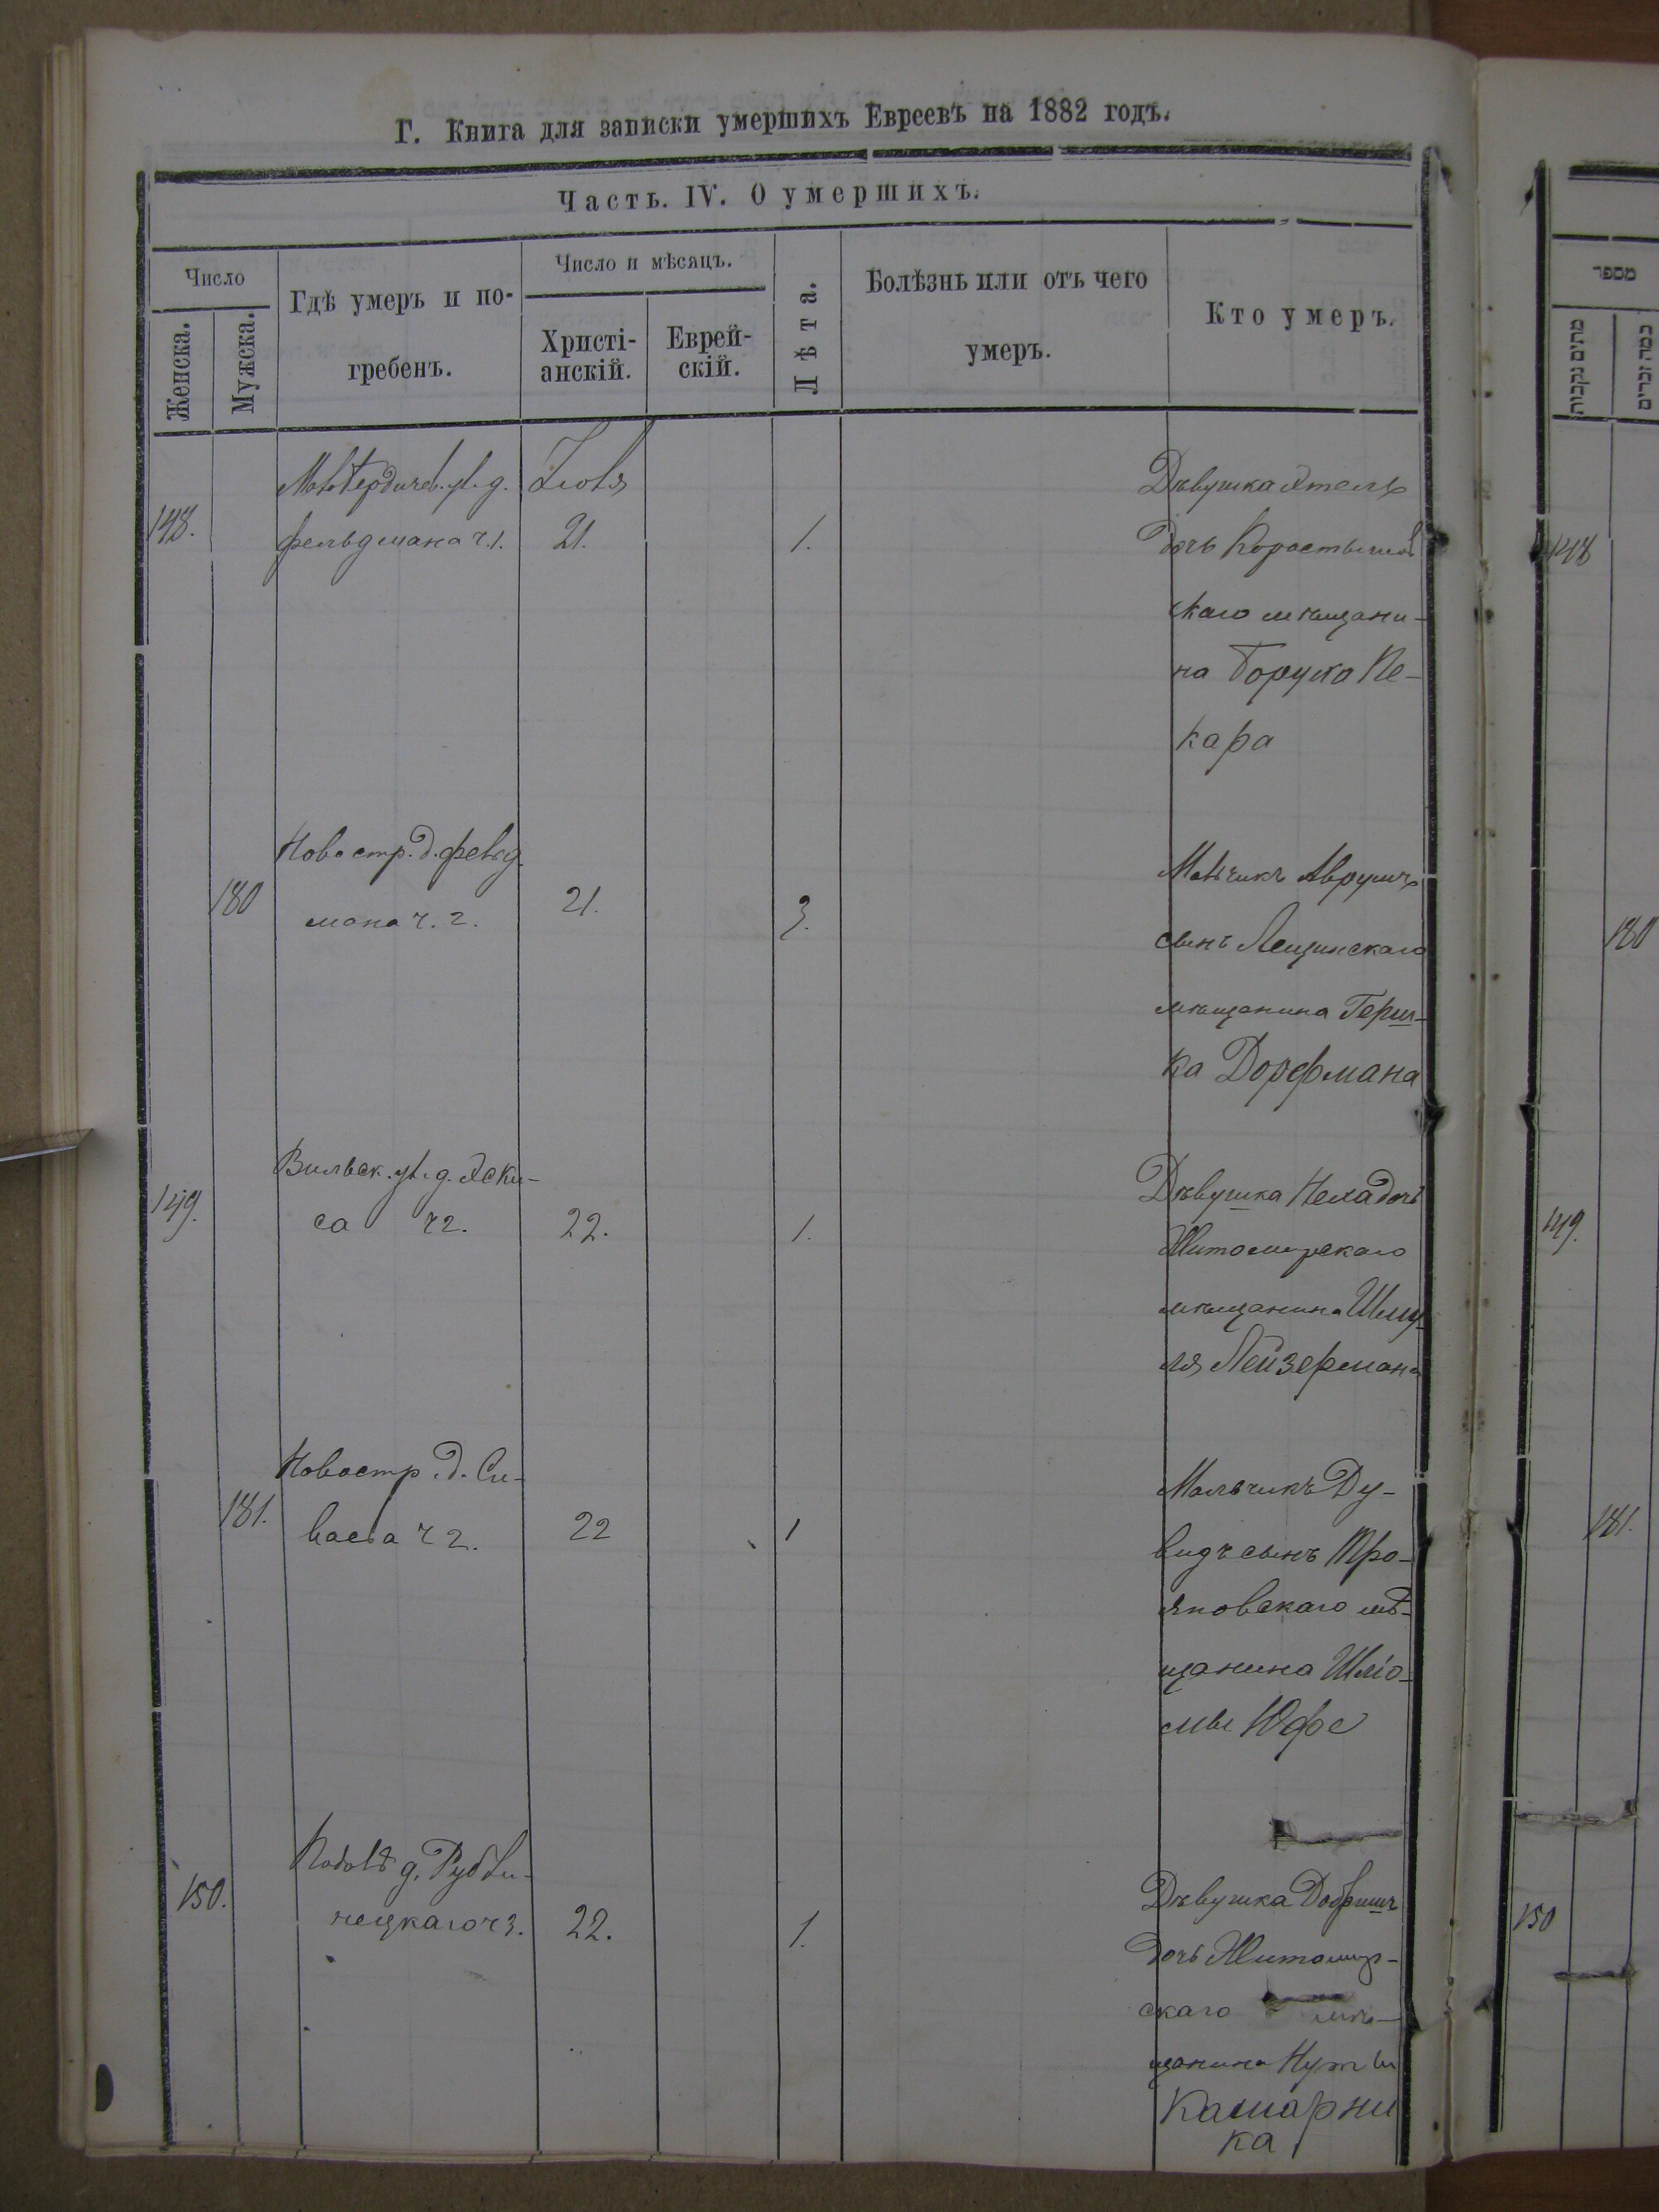 Г. Книга для записки умершихъ Евреевъ на 1882 годъ.
Часть. IV. О умершихъ.
Число
Женска.
Мужска.
Гдѣ умеръ и по-
гребенъ.
Число и мѣсяцъ.
Христі-
анскій.
Еврей-
скій.
Лѣта.
Болѣзнь или отъ чего
умеръ.
Кто умеръ.
148.
ул. д.
фельдмана ч. 1.
Іюля
21.
1.
Дѣвушка
дочь
скаго мѣщани-
на Боруха Пе-
кара
180
Новостр. д.
мана ч. 2.
21.
3.
Мальчикъ Аврумъ
сынъ Лещинскаго
мѣщанина Герш-
ка Дорфмана
149.
Вильск. ул. д.
са ч 2.
22.
1.
Дѣвушка Неха дочь
Житомирскаго
мѣщанина Шму-
ля Лейзермана
181.
Новостр. д. Си-
ч 2.
22
1
Мальчикъ Ду-
видъ сынъ Тро-
яновскаго мѣ-
щанина Шліо-
мы Юфе
150.
д.
нецкаго ч 3.
22.
1.
Дѣвушка Добришъ
дочь Житомир-
скаго мѣ-
щанина
Кашарни
ка
מספר
מתים נקבות
כמה זכרים
148
180
149.
181.
150